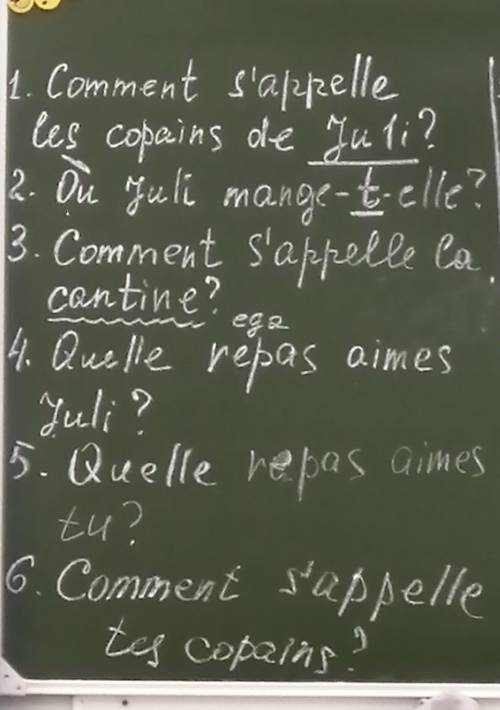 1. Comment s'appelle
les copains de Juli?
2. Où Juli mange-t-elle?
3. Comment s'appelle la
cantine?
еда
4. Quelle repas aimes
Juli?
5. Quelle repas aimes
tu?
6. Comment s'appelle
tes copains?